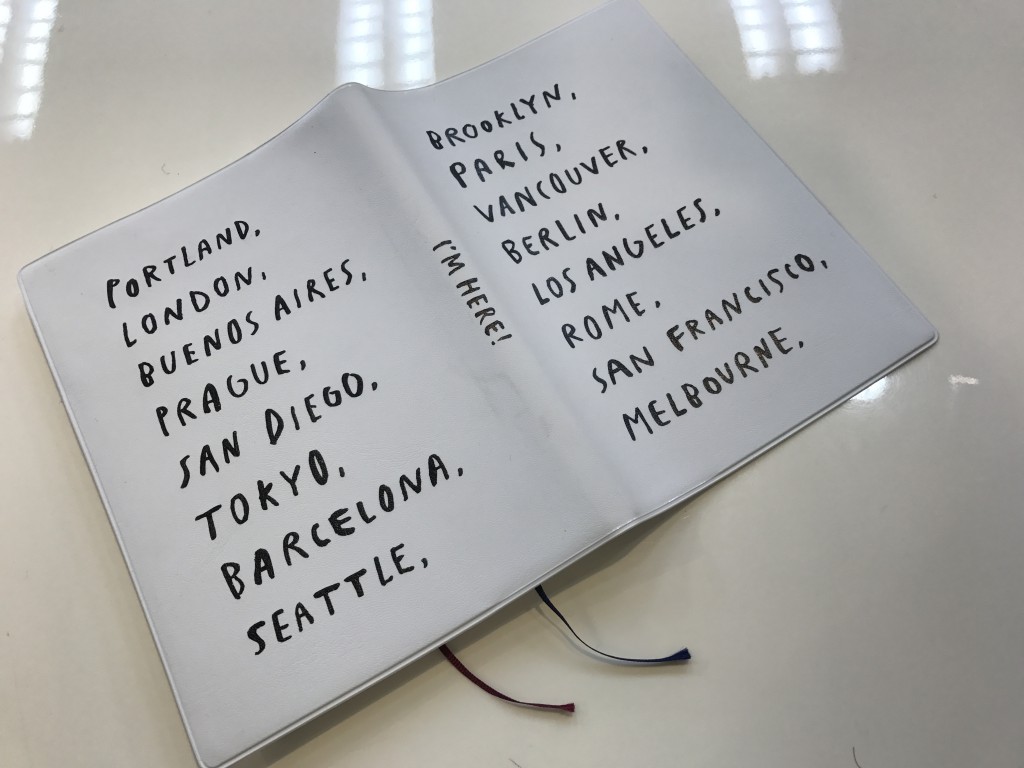 PORTLAND,
LONDON,
BUENOS AIRES,
PRAGUE,
SAN DIEGO,
TOKYO,
BARCELONA,
SEATTLE,
I'M HERE!
BROOKLYN,
PARIS,
VANCOUVER,
BERLIN,
LOS ANGELES,
ROME,
SAN FRANCISCO,
MELBOURNE,